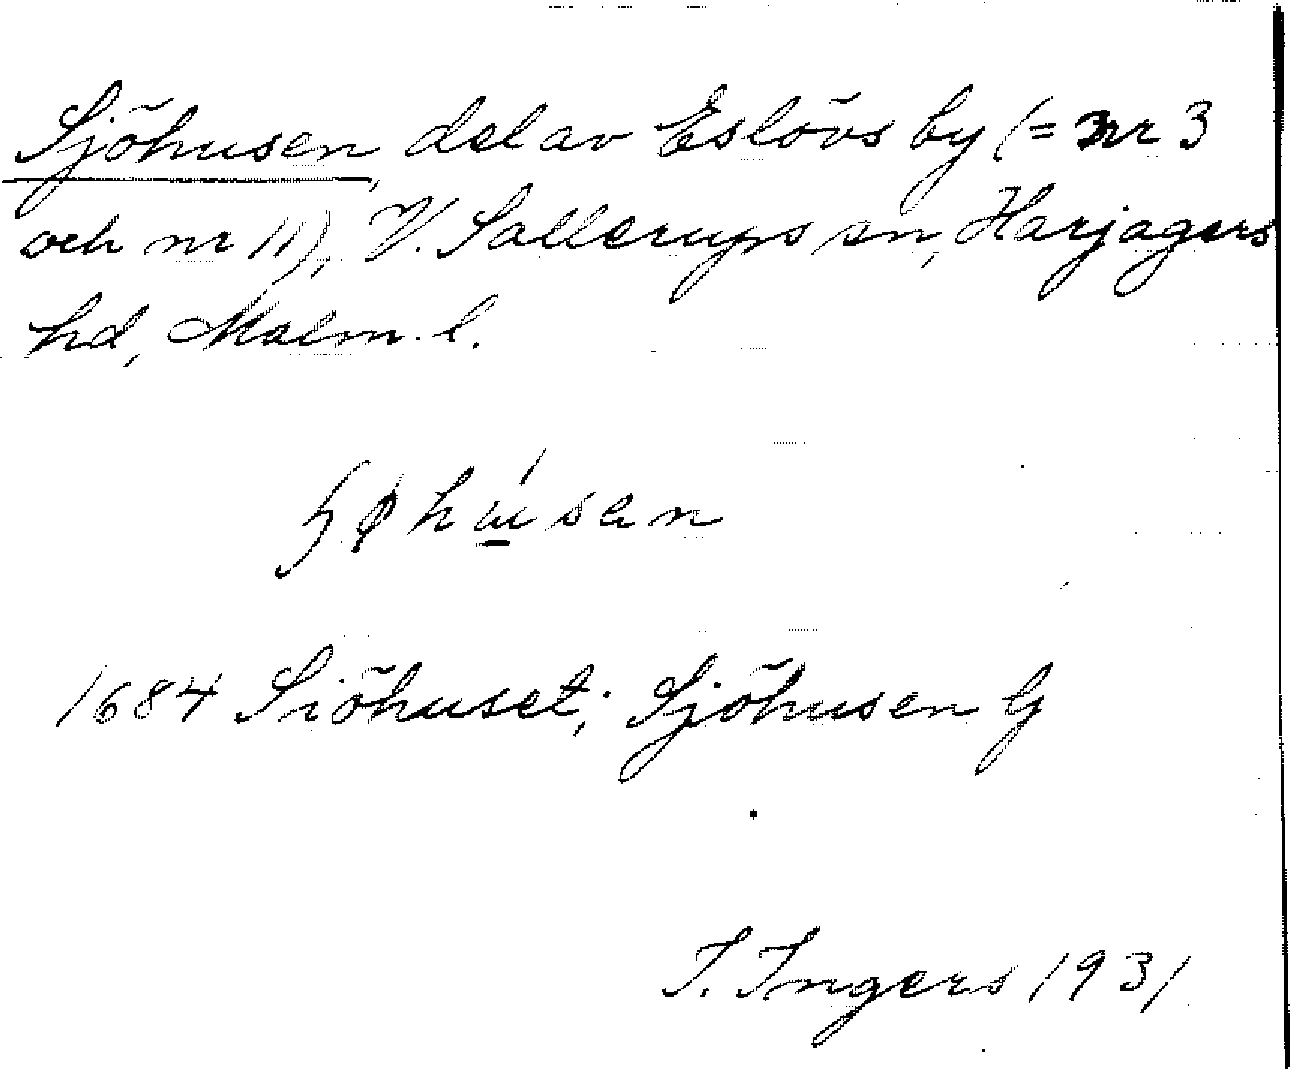 Sjöhusen, del av Eslövs by (= nr 3
och nr 11), V. Sallerups sn, Harjagers
hd, Malm. l.
1684 Siöhuset; Sjöhusen G
I. Ingers 1931